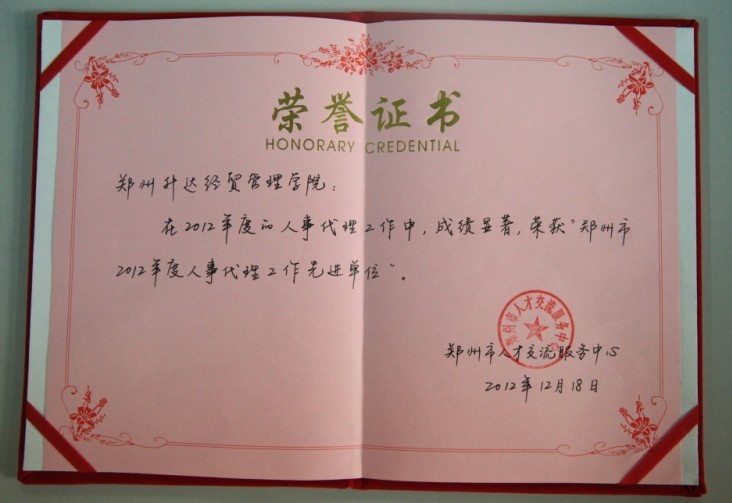 荣誉证书
HONORARY CREDENTIAL
郑州升达经贸管理学院：
在2012年度的人事代理工作中，成绩显著，荣获“郑州市
2012年度人事代理工作先进单位”。
郑州市人才交流服务中心
郑州市人才交流服务中心
2012年12月18日